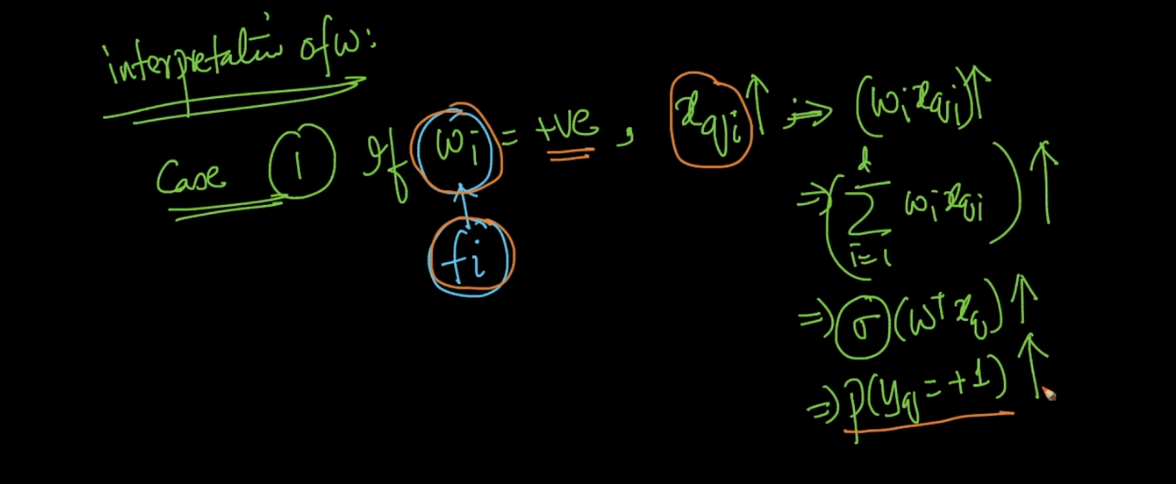 interpretation of w:
Case 1 If wᵢ = +ve, x_qi ↑ ⇒ (wᵢ x_qi) ↑
fi
⇒ (∑_{i=1}^{d} wᵢ x_qi) ↑
⇒ σ(wᵀ x_q) ↑
⇒ p(y_q = +1) ↑